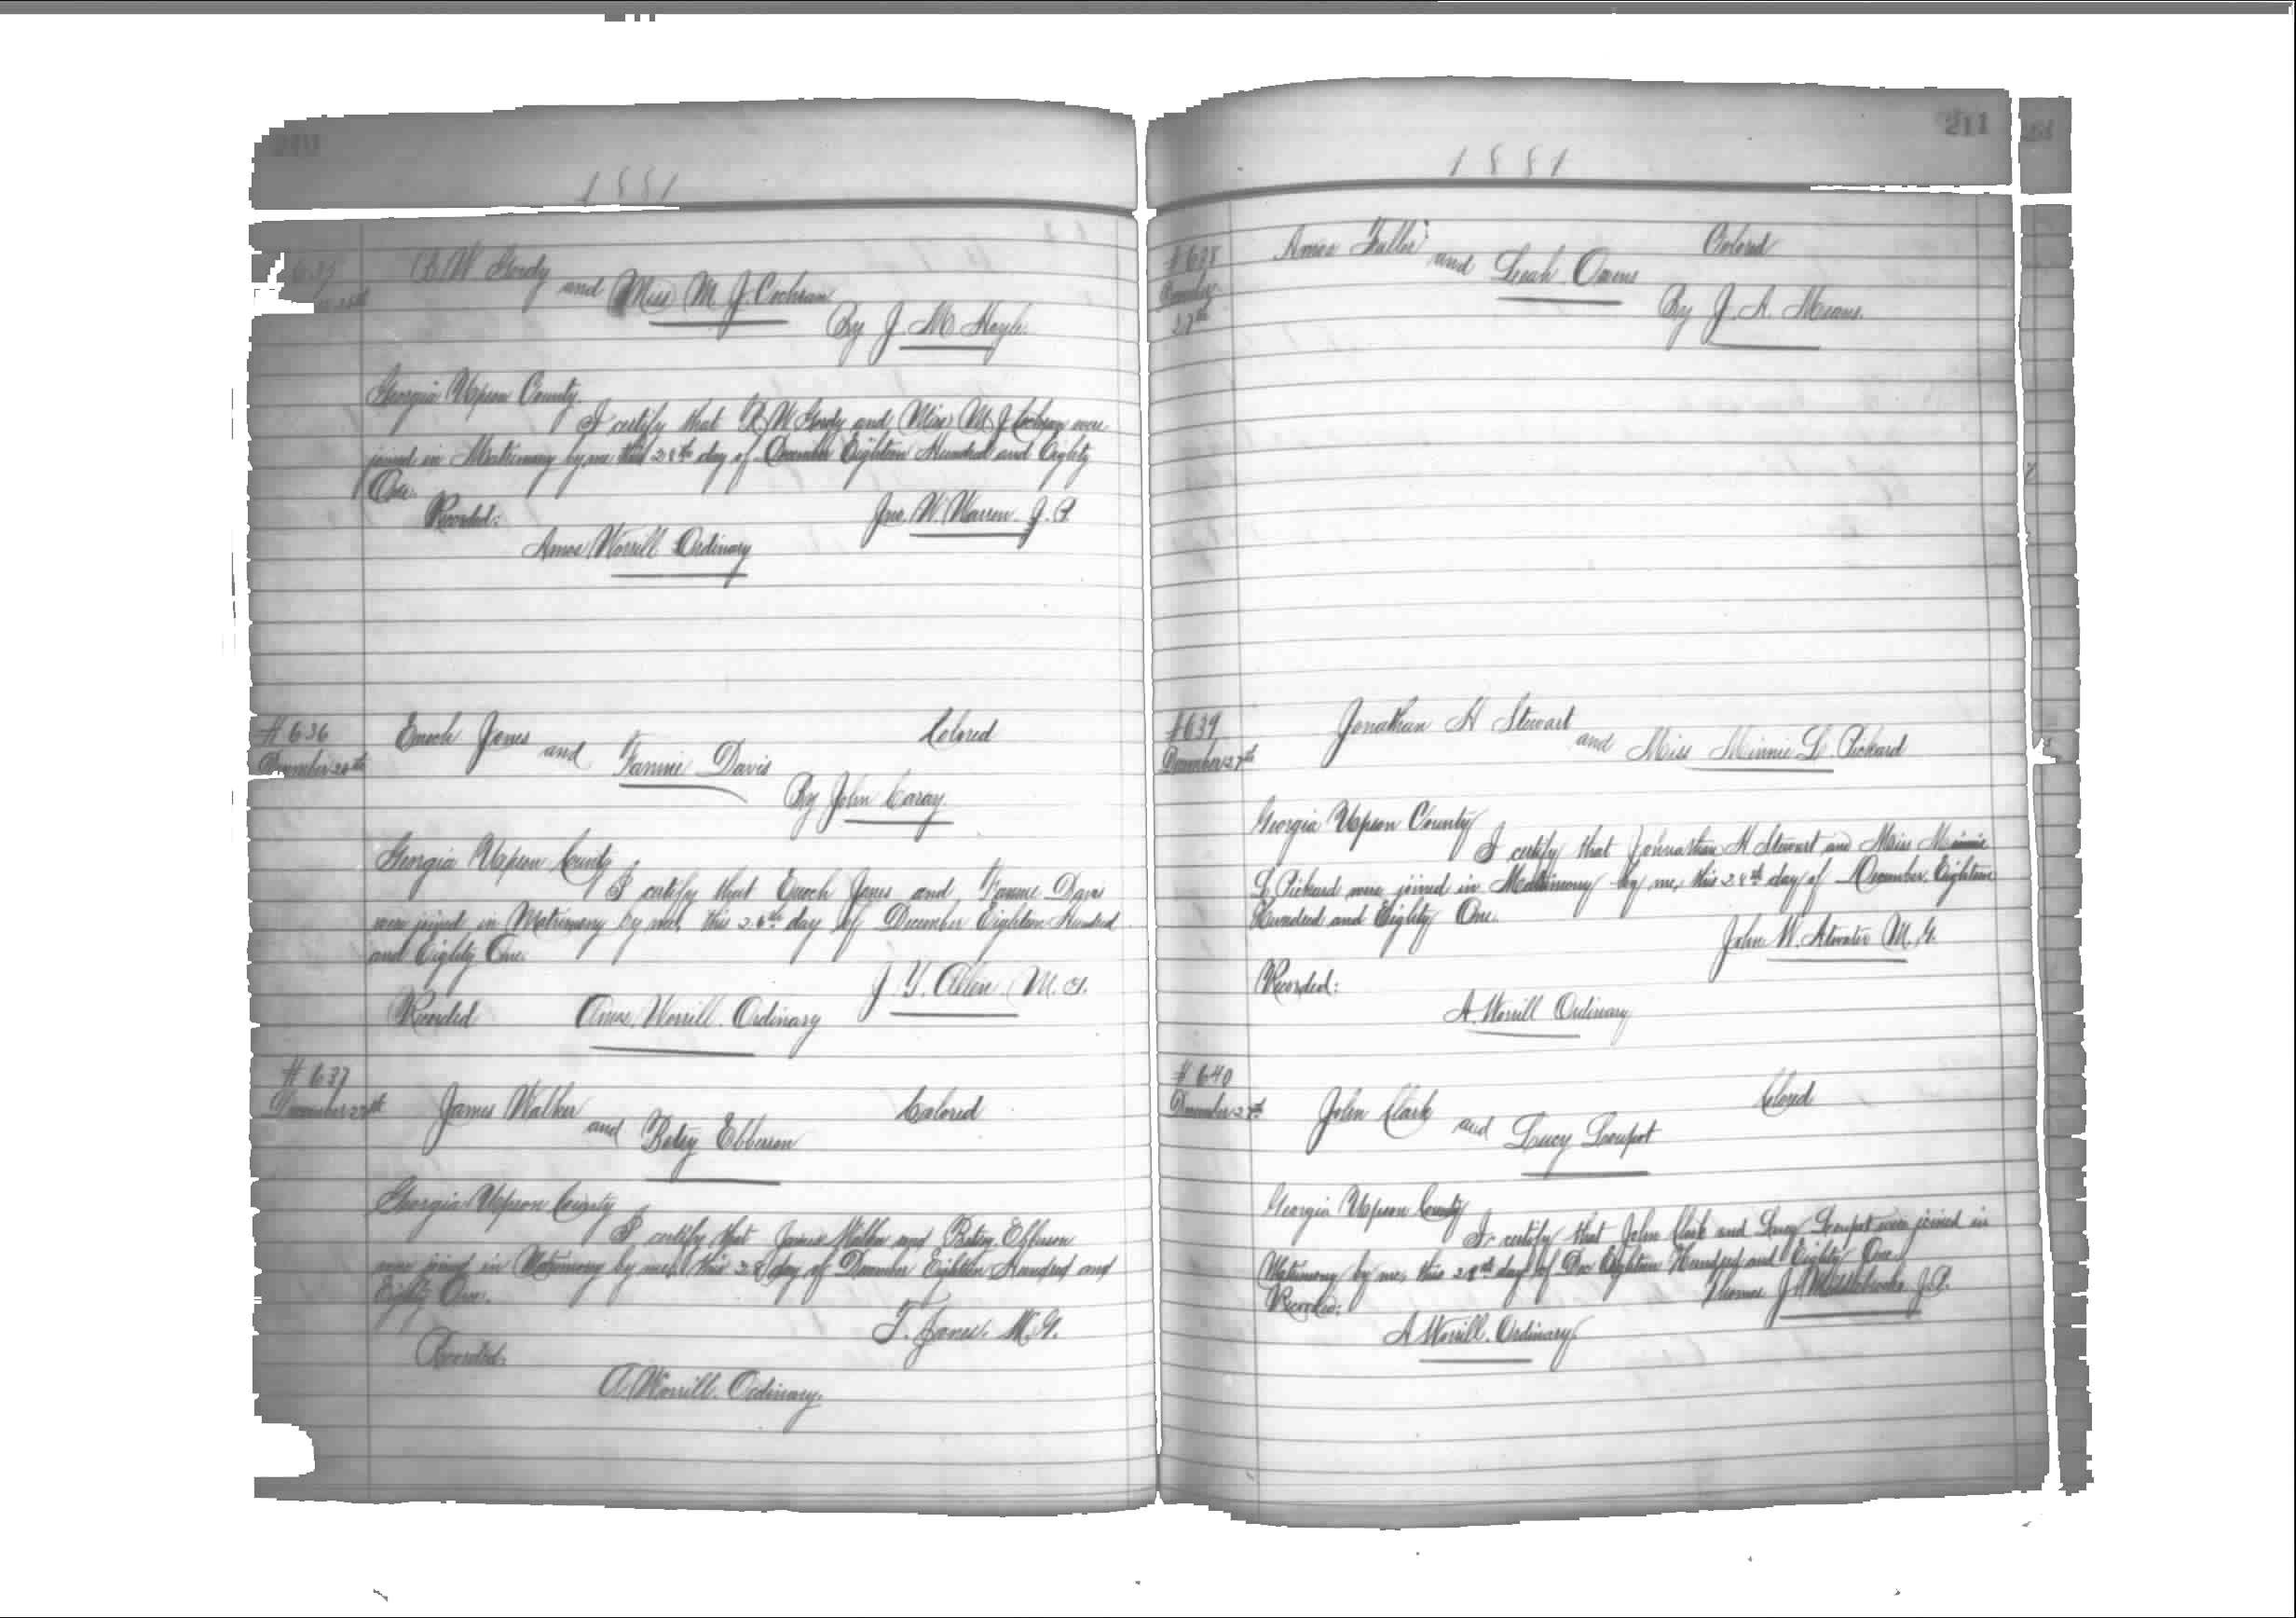 210
1881
635
B. W. Gordy and Miss M. J. Cochran
By J. M. Hoyle.
Georgia Upson County
I certify that B. W. Gordy and Miss M. J. Cochran were
joined in Matrimony by me this 28th day of December Eighteen Hundred and Eighty
One.
Recorded: Jno. W. Warren. J. P.
Amos Worrill Ordinary
# 636 Enoch Jones and Fannie Davis Colored
December
By John Caray.
Georgia Upson County
I certify that Enoch Jones and Fannie Davis
were joined in Matrimony by me, this 26th day of December Eighteen Hundred
and Eighty One.
J. Y. Allen M. G.
Recorded Amos Worrill. Ordinary
# 637
December 27th James Walker and Betsy Ebberson Colored
Georgia Upson County
I certify that James Walker and Betsy Ebberson
were joined in Matrimony by me, this 28 day of December Eighteen Hundred and
Eighty One.
T. Jones. M. G.
Recorded.
A Worrill. Ordinary.
211
1881
# 638 Amos Fuller and Leah Owens Colored
December
27th By J. A. Means.
# 639 Jonathan H Stewart and Miss Minnie L. Pickard
December 27th
Georgia Upson County
I certify that Johnathan H Stewart and Miss Minnie
L. Pickard were joined in Matrimony by me, this 28th day of December. Eighteen
Hundred and Eighty One.
John W. Atwater M. G.
Recorded:
A. Worrill Ordinary
# 640
December 27th John Clark and Lucy Colored
Georgia Upson County
I certify that John Clark and Lucy were joined in
Matrimony by me, this 28th day of Dec Eighteen Hundred and Eighty One.
Recorded: Thomas J. Middlebrooks. J. P.
A Worrill. Ordinary